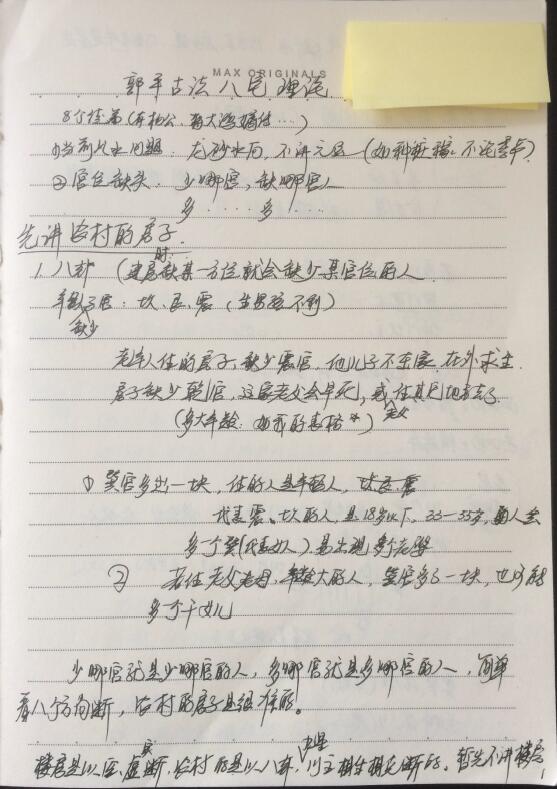 MAX ORIGINALS
郭平古法八宅理论
8个徒弟(
①当前山水问题:龙砂水向,不讲元运(如种桩稼,不论季节)
②宫位缺失:少哪宫,缺哪宫人
多····多···
先讲农村的房子:
时
1.八卦(建房缺某一方位就会缺少某宫位的人
子宫:坎、艮、震(生男孩不利)
缺少
老年人住的房子,缺少震宫,他儿子不在家,在外求生
房子缺少乾宫,这家老父会早死,或住其它地方去了
老父
(多大年龄:如我的表格*)
①巽宫多出一块,住的人是年轻人,坎艮震
代表震、坎的人,是18岁以下,33-35岁,
多个巽(代表女人)易出现多个老婆
② 若住老父老母,年龄大的人,巽宫多了一块,也可能
多个干女儿
少哪宫就是少哪宫的人,多哪宫就是多哪宫的人,简单
看八个方向断,农村的房子是很准的。
楼房是以 虚实断,农村的是以八卦,断的。暂先不讲楼房
1